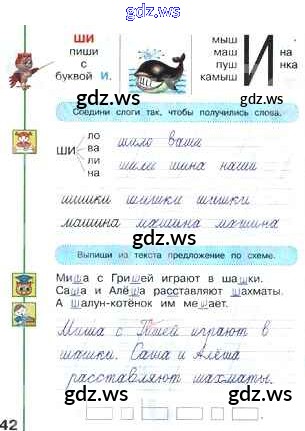 ШИ
пиши
с
буквой И.
мыш
маш
пуш
камыш
И
на
нка
gdz.ws
gdz.ws
Соедини слоги так, чтобы получились слова.
ШИ
ло
ва
ли
на
шило ваши
шили шина наши
gdz.ws
gdz.ws
шишки шишки шишки
машина машина машина
gdz.ws
Выпиши из текста предложение по схеме.
Миша с Гришей играют в шашки.
Саша и Алёша расставляют шахматы.
А Шалун-котёнок им мешает.
gdz.ws
gdz.ws
Миша с Гришей играют в
шашки. Саша и Алёша
расставляют шахматы.
gdz.ws
gdz.ws
42